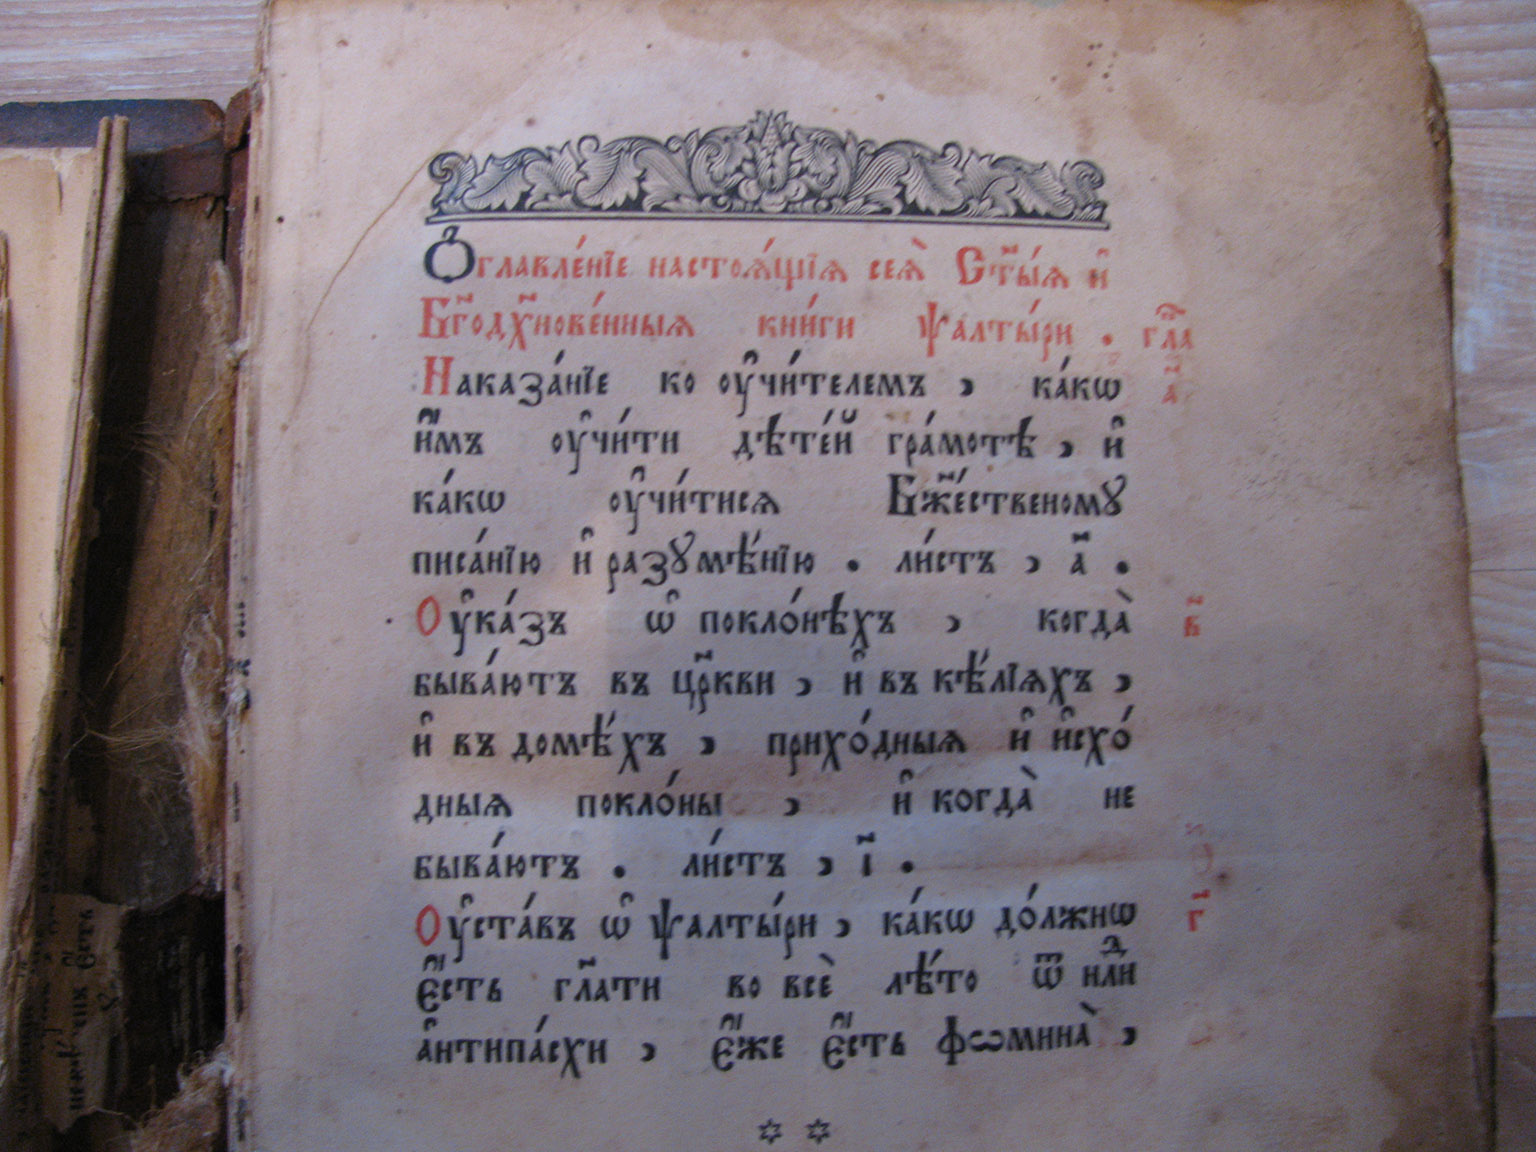 Ѻ҆главле́нїе настоѧ́щїѧ сеѧ̀ Ст҃ы́ѧ и҆
Бг҃одх҃нове́нныѧ кни́ги ѱалты́ри . гла̑
Наказа́нїе ко ᲂу҆чи́телемъ , ка́кѡ а҃
и҆̀мъ ᲂу҆чи́ти дѣте́й гра́мотѣ , и҆
ка́кѡ ᲂу҆чи́тисѧ Бж҃е́ственому
писа́нїю и҆ разꙋмѣ́нїю . ли́стъ , а҃ .
Оу҆ка́зъ ѡ҆ покло́нѣхъ , когда̀ в҃
быва́ютъ въ цр҃кви , и҆ въ кѣ́лїѧхъ ,
и҆ въ домѣ́хъ , прихо́дныѧ и҆ и҆схо́
дныѧ покло́ны , и҆ когда̀ не
быва́ютъ . ли́стъ , і҃ .
Оу҆ста́въ ѡ҆ ѱалты́ри , ка́кѡ до́лжнѡ г҃
є҆́сть гл҃ати во всѐ лѣ́то ѿ нⷣли
а҆нтипа́схи , є҆́же є҆́сть фѡмина̀ ,